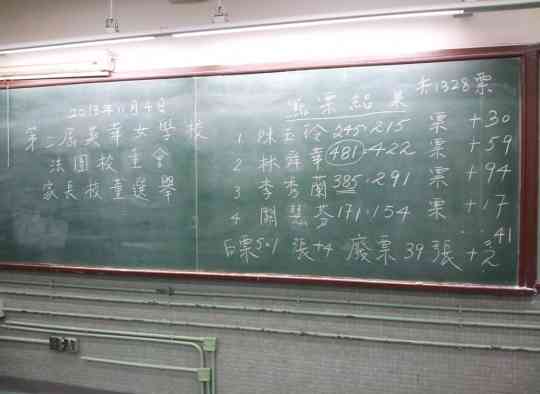 2013年11月4日
第二屆英華女學校
法團校董會
家長校董選舉
點票結果 共1328票
1 陳玉玲 245.215 票 +30
2 林舜華 481.422 票 +59
3 李秀蘭 385.291 票 +94
4 關慧芬 171.154 票 +17
白票5.1 張+4 廢票39張+2
41